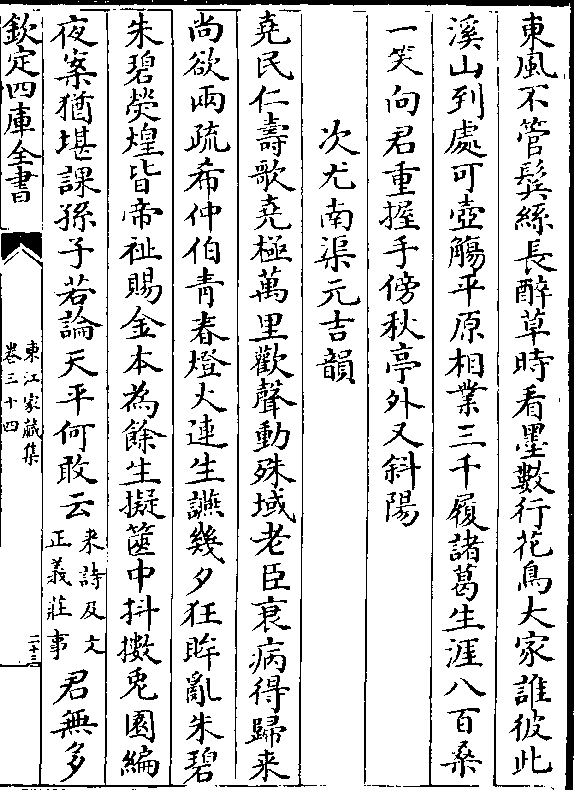 東風不管鬂絲長醉草時看墨數行花鳥大家誰彼此
溪山到處可壺觴平原相業三千履諸葛生涯八百桑
一笑向君重握手傍秋亭外又斜陽
次尤南渠元吉韻
堯民仁壽歌堯極萬里歡聲動殊域老臣衰病得歸来
尚欲兩疏希仲伯青春燈火連生讌幾夕狂眸亂朱碧
朱碧熒煌皆帝祉賜金本為餘生擬篋中抖擻兎園編
夜案猶堪課孫子若論天平何敢云来詩及文正義莊事君無多
欽定四庫全書
東江家藏集
卷三十四
二十三